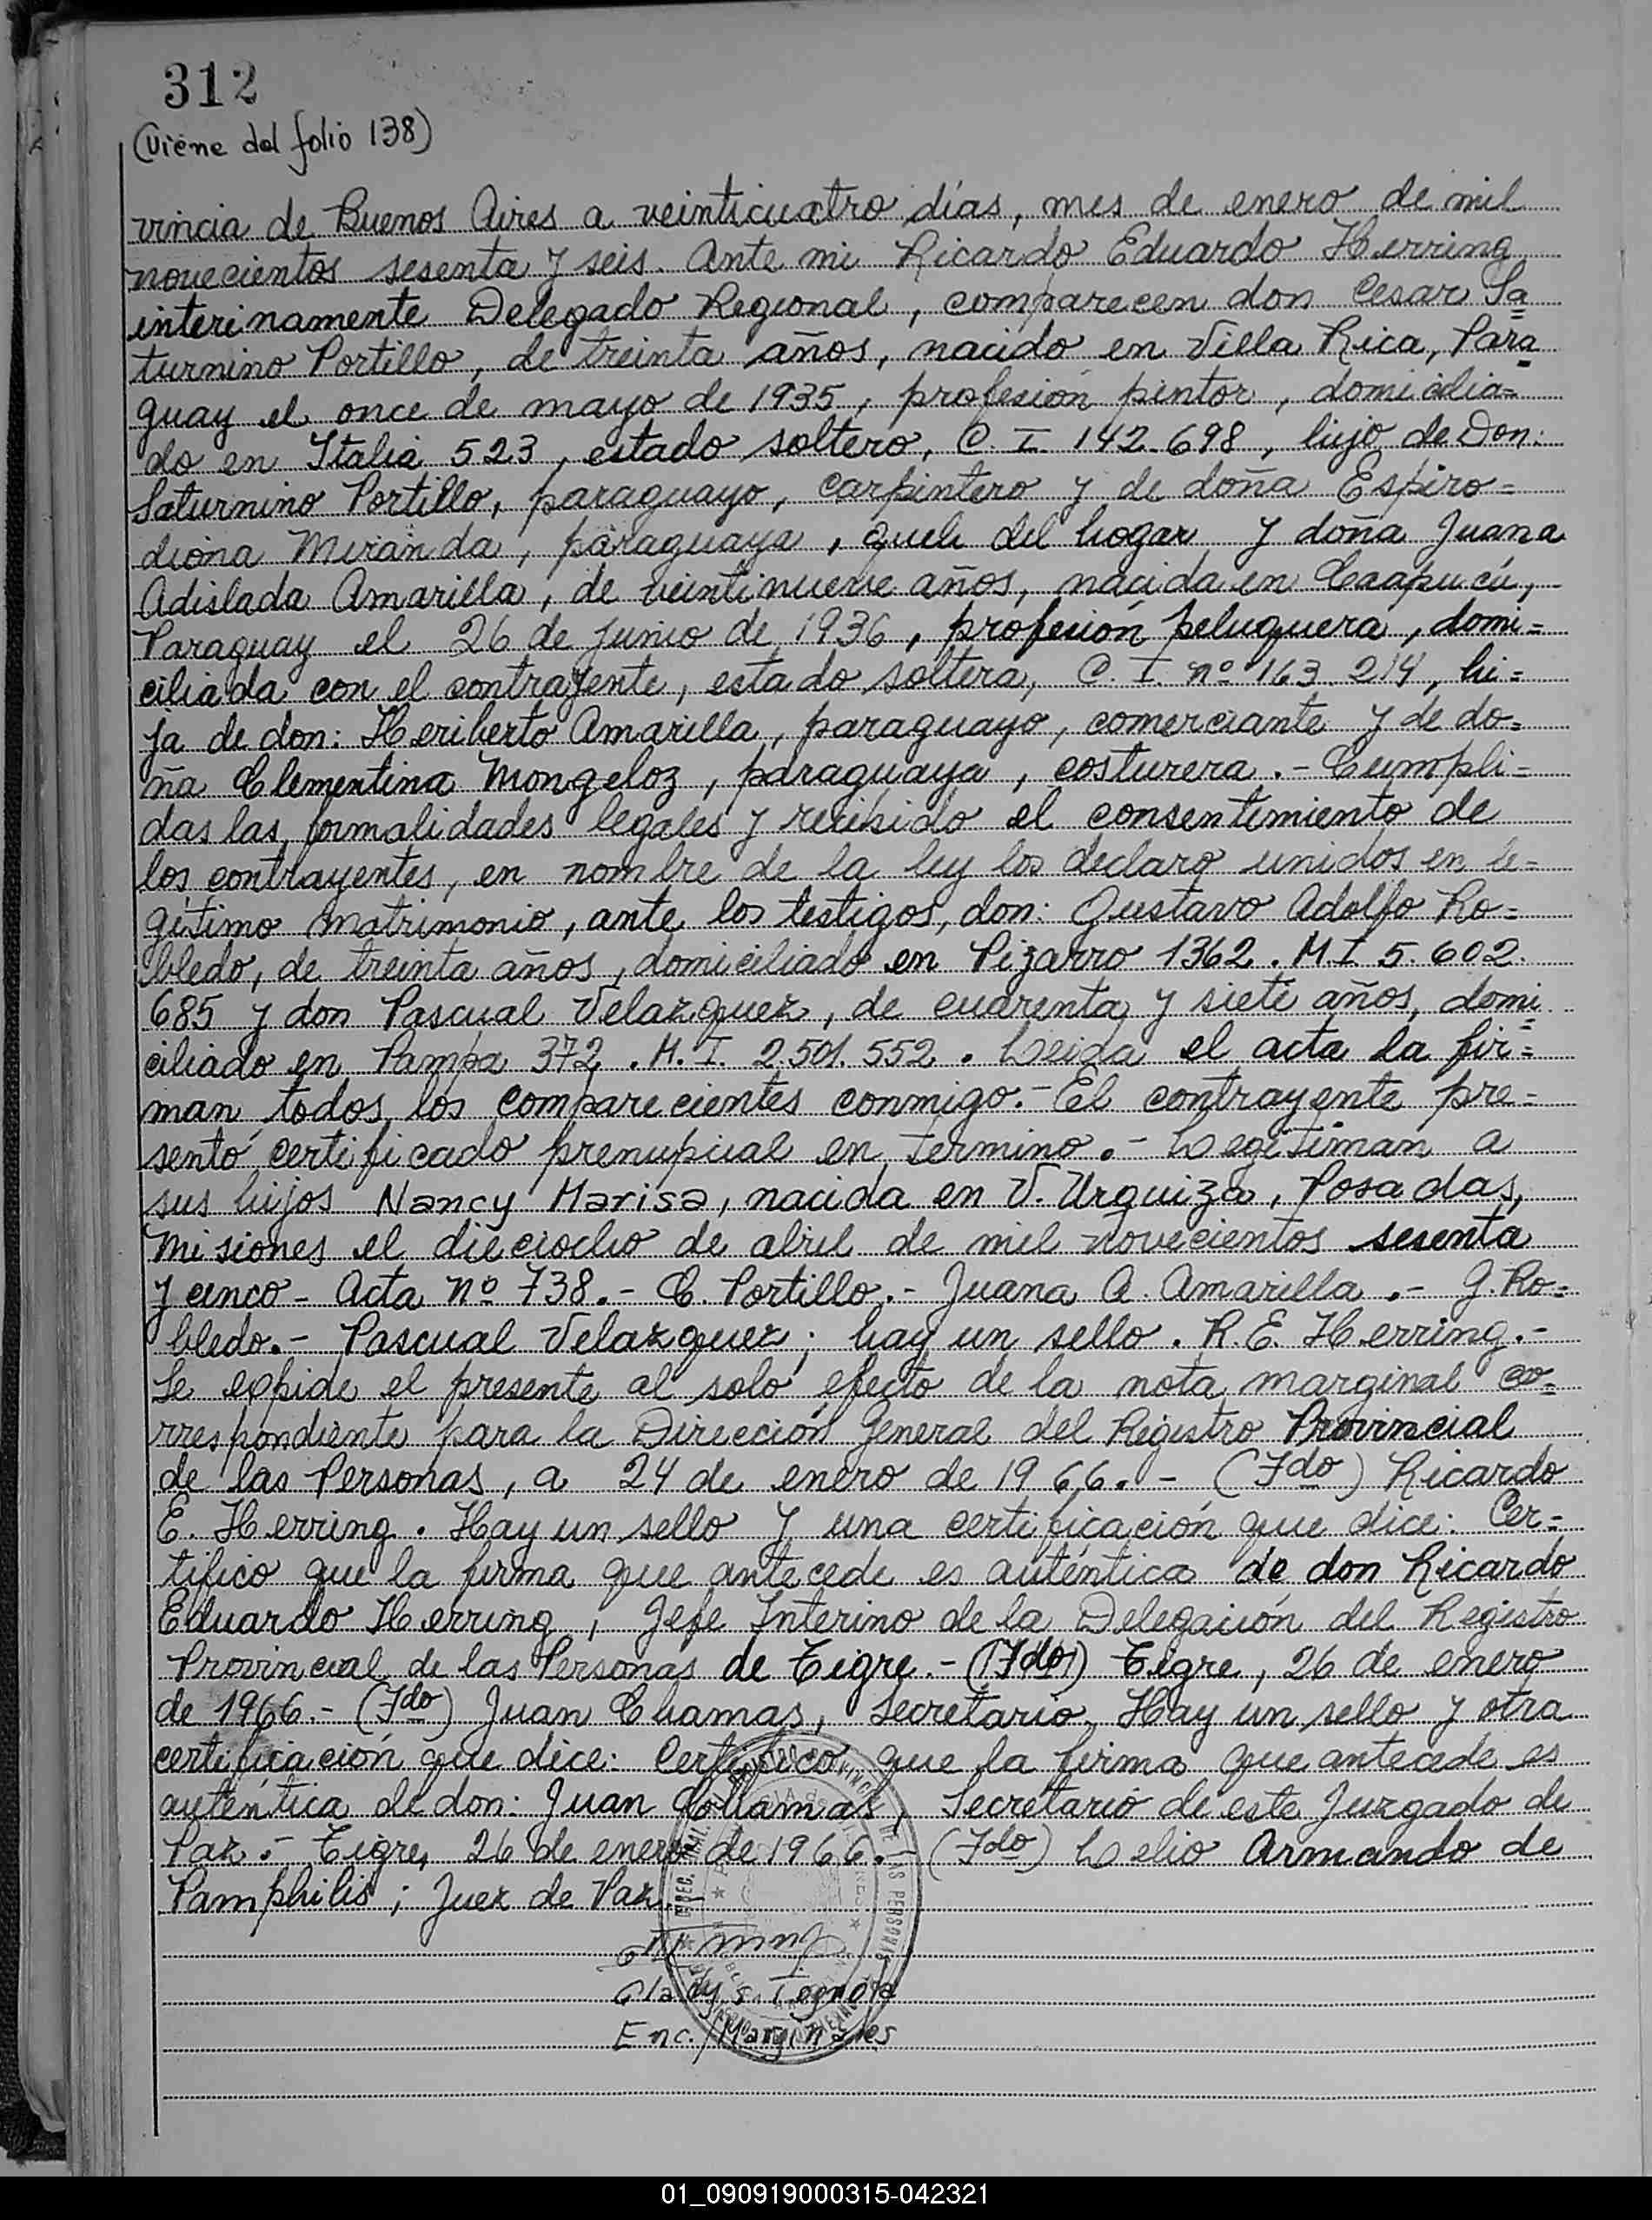 312
(viene del folio 138)
vincia de Buenos Aires a veinticuatro días, mes de enero de mil
novecientos sesenta y seis. Ante mi Ricardo Eduardo Herring
interinamente Delegado Regional, comparecen don Cesar Sa=
turnino Portillo, de treinta años, nacido en Villa Rica, Para=
guay el once de mayo de 1935, profesión pintor, domicilia=
do en Italia 523, estado soltero, C. I. 142.698, hijo de Don:
Saturnino Portillo, paraguayo, carpintero y de doña Espiro=
diona Miranda, paraguaya, queh del hogar y doña Juana
Adislada Amarilla, de veintinueve años, nacida en Caapucú,
Paraguay el 26 de junio de 1936, profesión peluquera, domi=
ciliada con el contrayente, estado soltera, C. I. nº 163.214, hi=
ja de don: Heriberto Amarilla, paraguayo, comerciante y de do=
ña Clementina Mongeloz, paraguaya, costurera.- Cumpli=
das las formalidades legales y recibido el consentimiento de
los contrayentes, en nombre de la ley los declaro unidos en le=
gitimo matrimonio, ante los testigos, don: Gustavo Adolfo Ro=
bledo, de treinta años, domiciliado en Pizarro 1362. M.I 5.602.
685 y don Pascual Velazquez, de cuarenta y siete años, domi=
ciliado en Pampa 372. M. I. 2.501.552. Leida el acta la fir=
man todos los comparecientes conmigo.- El contrayente pre=
sentó certificado prenupcial en termino.- Legitiman a
sus hijos Nancy Marisa, nacida en V. Urquiza, Posadas,
Misiones el dieciocho de abril de mil novecientos sesenta
y cinco - Acta nº 738.- C. Portillo.- Juana A. Amarilla.- G. Ro=
bledo.- Pascual Velazquez; hay un sello. R. E. Herring.-
Se expide el presente al solo efecto de la nota marginal co=
rrespondiente para la Dirección General del Registro Provincial
de las Personas, a 24 de enero de 1966.- (Fdo) Ricardo
E. Herring. Hay un sello y una certificación que dice: Cer=
tifico que la firma que antecede es auténtica de don Ricardo
Eduardo Herring, Jefe Interino de la Delegación del Registro
Provincial de las Personas de Tigre.- (Fdo) Tigre, 26 de enero
de 1966.- (Fdo) Juan Chamas, Secretario. Hay un sello y otra
certificación que dice: Certifico que la firma que antecede es
auténtica de don: Juan Chamas, Secretario de este Juzgado de
Paz.- Tigre, 26 de enero de 1966.- (Fdo) Lelio Armando de
Pamphilis; Juez de Paz.-
Gladys Tognola
Enc. Marginales
01_090919000315-042321